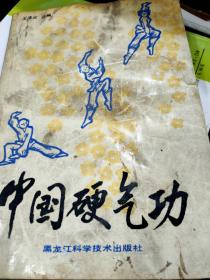 中国硬气功
黑龙江科学技术出版社